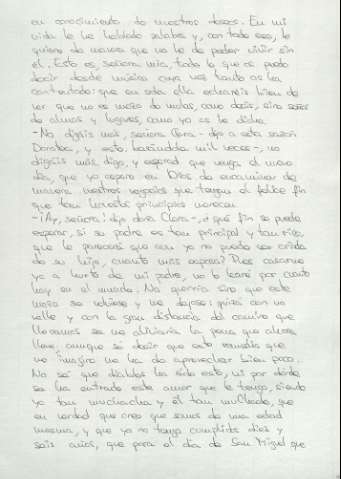 en conocimiento de nuestros deseos. En mi
vida le he hablado palabra y, con todo eso, le
quiero de manera que no he de poder vivir sin
él. Esto es, señora mía, todo lo que os puedo
decir deste músico cuya voz tanto os ha
contentado: que en sola ella echaréis bien de
ver que no es mozo de mulas, como decís, sino señor
de almas y lugares, como yo os he dicho.
-No digáis más, señora Clara - dijo a esta sazón
Dorotea, y esto, besándola mil veces-, no
digáis más, digo, y esperad que venga el nuevo
día, que yo espero en Dios de encaminar de
manera vuestros negocios que tengan el felice fin
que tan honestos principios merecen
-¡Ay, señora! dijo doña Clara-, ¿qué fin se puede
esperar, si su padre es tan principal y tan rico,
que le parecerá que aun yo no puedo ser criada
de su hijo, cuanto más esposa? Pues casarme
yo a hurto de mi padre, no lo haré por cuanto
hay en el mundo. No querría sino que este
mozo se volviese y me dejase: quizá con no
velle y con la gran distancia del camino que
llevamos se me aliviaría la pena que ahora
llevo, aunque sé decir que este remedio que
me imagino me ha de aprovechar bien poco.
No sé qué diablos ha sido esto, ni por dónde
se ha entrado este amor que le tengo, siendo
yo tan muchacha y él tan muchacho, que
en verdad que creo que somos de una edad
mesma, y que yo no tengo cumplidos diez y
seis años, que para el día de San Miguel que